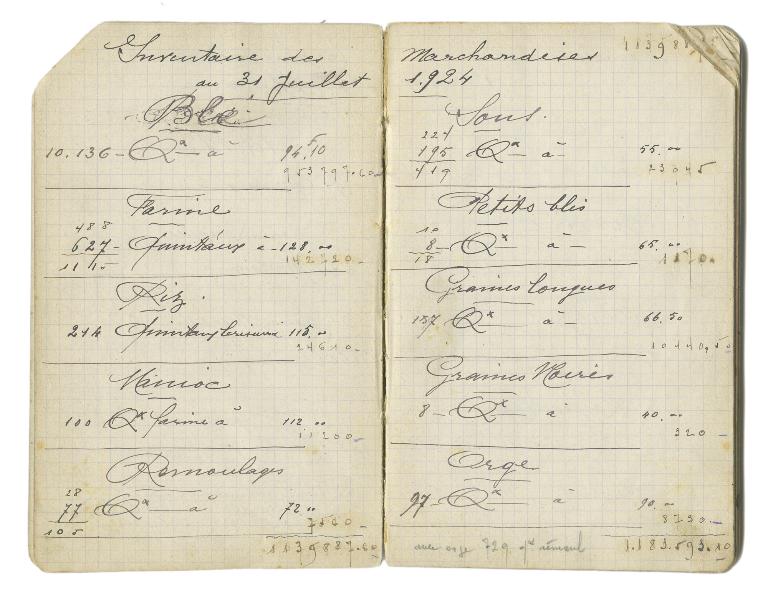 Inventaire des
au 31 Juillet
Blé
10.136 - Qx à 94,10
953797.60
Farine
488
627 - Quintaux à - 128.00
1115
142720 -
Riz
214 Quintaux 115.00
24610 -
Manioc
100 Qx farine à 112.00
11200 -
Remoulages
28
77 Qx à 72.00
105
7560 -
1139887.60
Marchandises 113988
1.924
Sons.
224
195 Qx à - 55.00
419 23045
Petits blés
10
8 - Qx à - 65.00
18 1170 -
Graines longues
157 Qx à - 66.50
10440,50
Graines Noires
8 - Qx à 40.00
320 -
Orge
97 - Qx à 90.00
8730 -
avec orge 729 qx
1.183.593.10